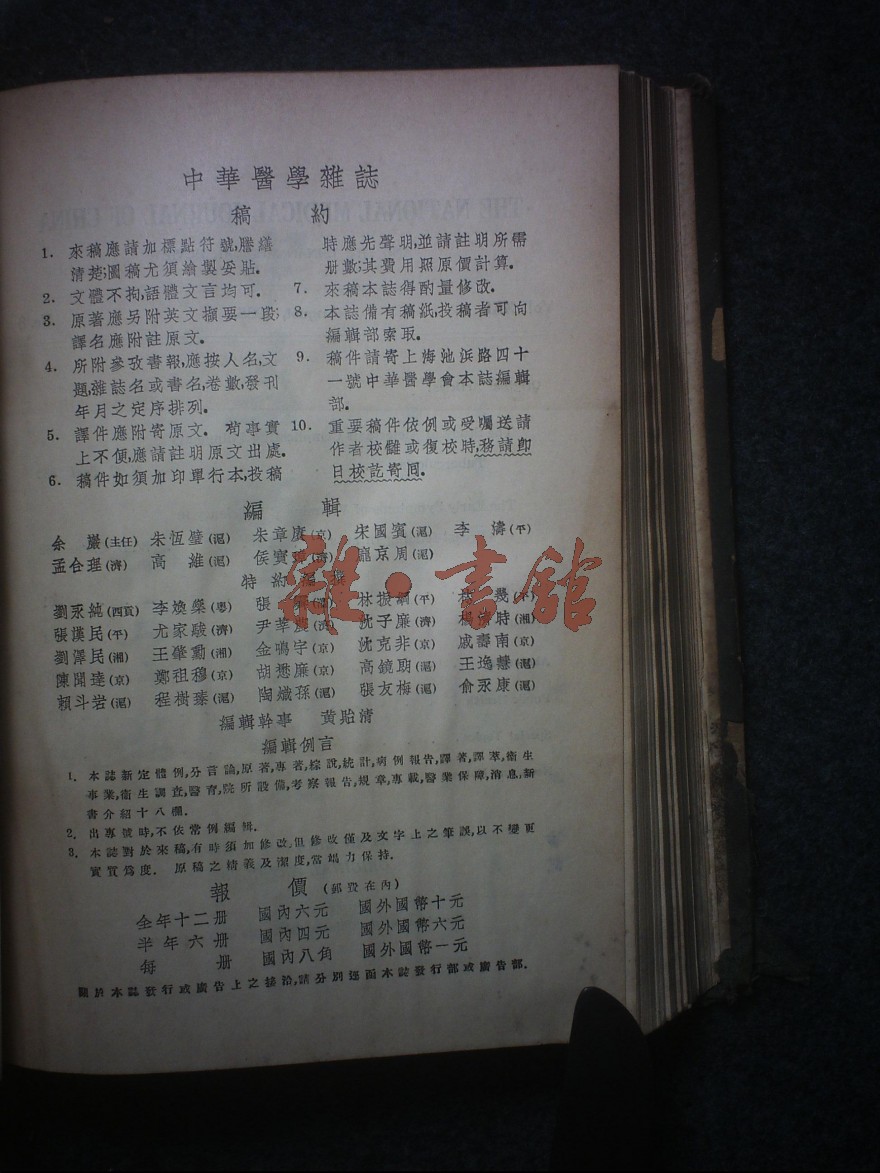 中華醫學雜誌
稿約
1. 來稿應請加標點符號,謄繕
清楚;圖稿尤須繪製妥貼.
2. 文體不拘,語體文言均可.
3. 原著應另附英文擷要一段;
譯名應附註原文.
4. 所附參攷書報,應按人名,文
題,雜誌名或書名,卷數,發刊
年月之定序排列.
5. 譯件應附寄原文. 苟事實
上不便,應請註明原文出處.
6. 稿件如須加印單行本,投稿
時應先聲明,並請註明所需
册數;其費用照原價計算.
7. 來稿本誌得酌量修改.
8. 本誌備有稿紙,投稿者可向
編輯部索取.
9. 稿件請寄上海池浜路四十
一號中華醫學會本誌編輯
部.
10. 重要稿件依例或受囑送請
作者校讎或復校時,務請卽
日校訖寄囘.
編輯
余巖(主任) 朱恆璧(滬) 朱章賡(京) 宋國賓(滬) 李濤(平)
孟合理(濟) 高維(滬) 侯寶璋(濟) 龐京周(滬)
特約編撰
劉永純(西貢) 李煥燊(粵) 張 林振綱(平) 林幾(平)
張漢民(平) 尤家駿(濟) 尹莘農(濟) 沈子廉(濟) 楊濟時(湘)
劉澤民(湘) 王肇勳(湘) 金鳴宇(京) 沈克非(京) 戚壽南(京)
陳聞達(京) 鄭祖穆(京) 胡懋廉(京) 高鏡朗(滬) 王逸慧(滬)
賴斗岩(滬) 程樹榛(滬) 陶熾孫(滬) 張友梅(滬) 俞永康(滬)
編輯幹事 黃貽清
編輯例言
1. 本誌新定體例,分言論,原著,專著,綜說,統計,病例報告,譯著,譯萃,衛生
事業,衛生調查,醫育,院所設備,考察報告,規章,專載,醫業保障,消息,新
書介紹十八欄.
2. 出專號時,不依常例編輯.
3. 本誌對於來稿,有時須加修改,但修改僅及文字上之筆誤,以不變更
實質爲度. 原稿之精義及潔度,當竭力保持.
報價(郵費在內)
全年十二册 國內六元 國外國幣十元
半年六册 國內四元 國外國幣六元
每册 國內八角 國外國幣一元
關於本誌發行或廣告上之接洽,請分別逕函本誌發行部或廣告部.
雜·書館